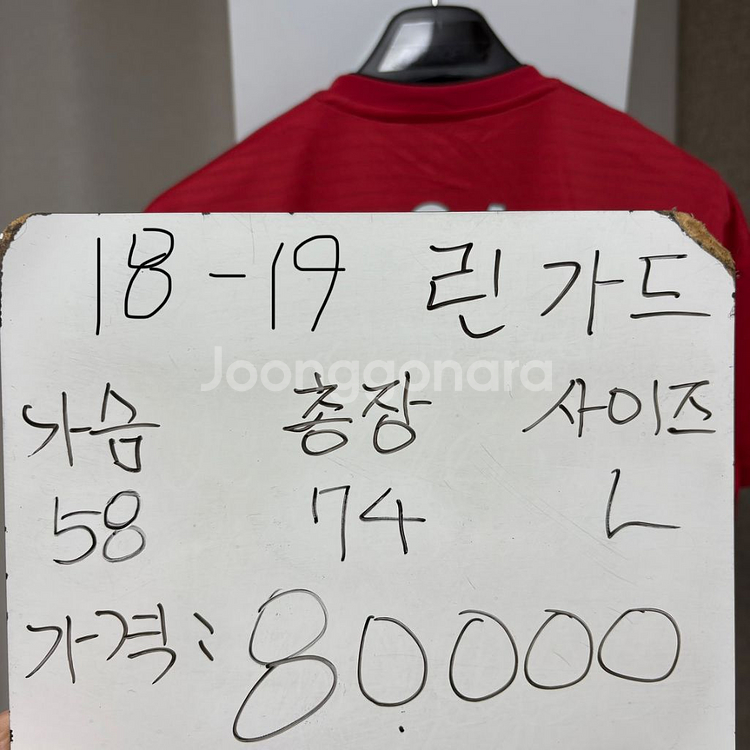 18-19 린가드
Joonggonara
가슴 총장 사이즈
58 74 L
가격: 80000